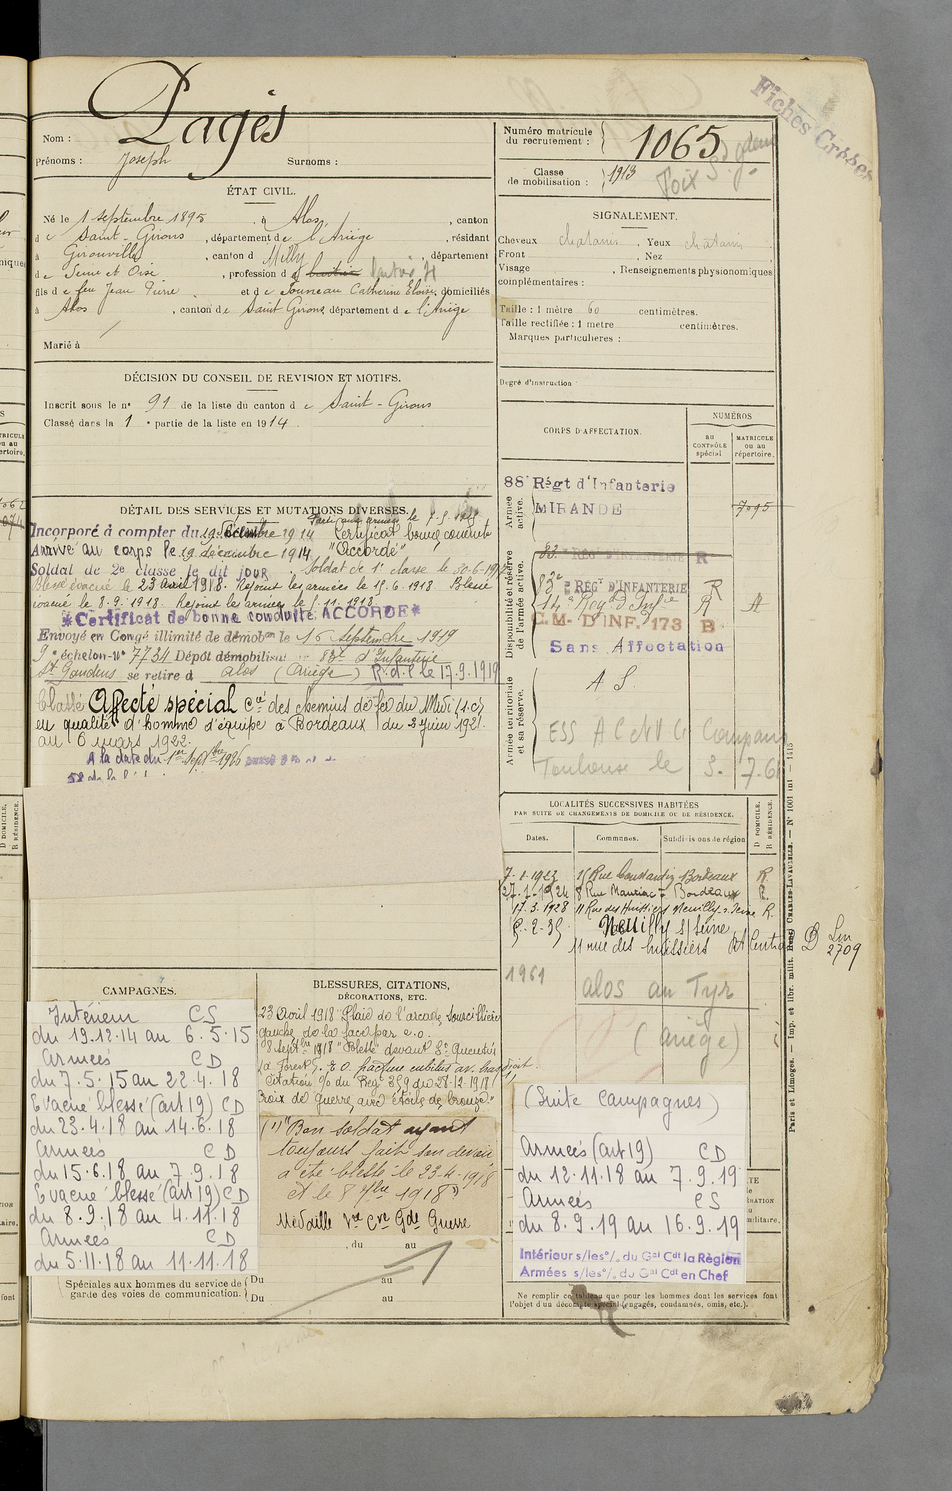 Fiches Grises
Nom : Pagès
Prénoms : Joseph Surnoms :
ÉTAT CIVIL.
Né le 1 septembre 1895, à Alos, canton
de Saint-Girons, département de l'Ariège, résidant
à Gironville, canton d Milly, département
de Seine et Oise, profession d
fils de feu Jean Pierre et de Souneau Catherine Eloïse, domiciliés
à Alos, canton de Saint Girons, département de l'Ariège
Marié à
DÉCISION DU CONSEIL DE REVISION ET MOTIFS.
Inscrit sous le n° 91 de la liste du canton de Saint-Girons
Classé dans la 1e partie de la liste en 1914
DÉTAIL DES SERVICES ET MUTATIONS DIVERSES.
Parti aux armées le 7.5.1915
Incorporé à compter du 19 décembre 1914 Certificat bonne conduite
Arrivé au corps le 19 décembre 1914. "Accordé"
Soldat de 2e classe le dit jour. Soldat de 1e classe le 30.6.19
Blessé évacué le 23 avril 1918. Rejoint les armées le 15.6.1918. Blessé
évacué le 8.9.1918. Rejoint les armées le 5.11.1918
*Certificat de bonne conduite ACCORDÉ*
Envoyé en Congé illimité de démobon le 16 septembre 1919
9e échelon-N° 7734 Dépôt démobilisateur 83e d'Infanterie
St Gaudens se retire à Alos (Ariège) R.d.l. le 17.9.1919
Classé Affecté spécial Cie des chemins de fer du Midi
en qualité d'homme d'équipe à Bordeaux du 2 Juin 1921
au 6 mars 1922.
A la date du 1er Septbre 1926
52 de la
CAMPAGNES.
Intérieur CS
du 19.12.14 au 6.5.15
Armées CD
du 7.5.15 au 22.4.18
Evacué blessé (art 19) CD
du 23.4.18 au 14.6.18
Armées CD
du 15.6.18 au 7.9.18
Evacué blessé (art 19) CD
du 8.9.18 au 4.11.18
Armées CD
du 5.11.18 au 11.11.18
Spéciales aux hommes du service de garde des voies de communication.
Du au
Du au
BLESSURES, CITATIONS,
DÉCORATIONS, ETC.
23 Avril 1918 "Plaie de l'arcade sourcilière
gauche de la face par e.o.
8 Septbre 1918 "Blessé" devant St Quentin
E.O. fracture cubitus av. bras droit.
Citation O/ du Régt 359 du 28.12.1918
Croix de Guerre avec étoile de bronze."
(1) "Bon soldat ayant
toujours fait son devoir
a été blessé le 23-4-1918
et le 8 7bre 1918"
Médaille Vre Cve Gde Guerre
, du au
Numéro matricule
du recrutement : 1065
Classe
de mobilisation : 1913
Foix
SIGNALEMENT.
Cheveux chatains, Yeux chatains
Front , Nez
Visage , Renseignements physionomiques
complémentaires :
Taille : 1 mètre 60 centimètres.
Taille rectifiée : 1 metre centimètres.
Marques particulières :
Degré d'instruction
CORPS D'AFFECTATION.
NUMÉROS
au
CONTRÔLE
spécial
MATRICULE
ou au
répertoire.
Armée active.
88e Régt d'Infanterie
MIRANDE 7095
Disponibilité et réserve de l'armée active.
83e REGt D'INFANTERIE R
83e REGt D'INFANTERIE R
14e Régt d'Infie R A
C.M. D'INF. 173 B
Sans Affectation
Armée territoriale et sa réserve.
A.S.
Toulouse le
LOCALITÉS SUCCESSIVES HABITÉES
PAR SUITE DE CHANGEMENTS DE DOMICILE OU DE RÉSIDENCE.
Dates. Communes. Subdivisions de région
D DOMICILE.
R RÉSIDENCE.
7-1-1923 Bordeaux R.
27-1-1924 8 Rue Mauriac Bordeaux R.
17.3.1928 11 Rue des Huissiers Neuilly s. Seine R.
6-2-35 Neuilly s/Seine
11 rue des huissiers D
2709
1961 alos
(Ariège)
(Suite Campagnes)
Armées (art 19) CD
du 12.11.18 au 7.9.19
Armées CS
du 8.9.19 au 16.9.19
Intérieur s/les °/. du Gal Cdt la Région
Armées s/les °/. du Gal Cdt en Chef
Ne remplir ce tableau que pour les hommes dont les services font
l'objet d'un décompte spécial (engagés, condamnés, omis, etc.).
Paris et Limoges. — Imp. et libr. milit. Henri CHARLES-LAVAUZELLE. — N° 1001